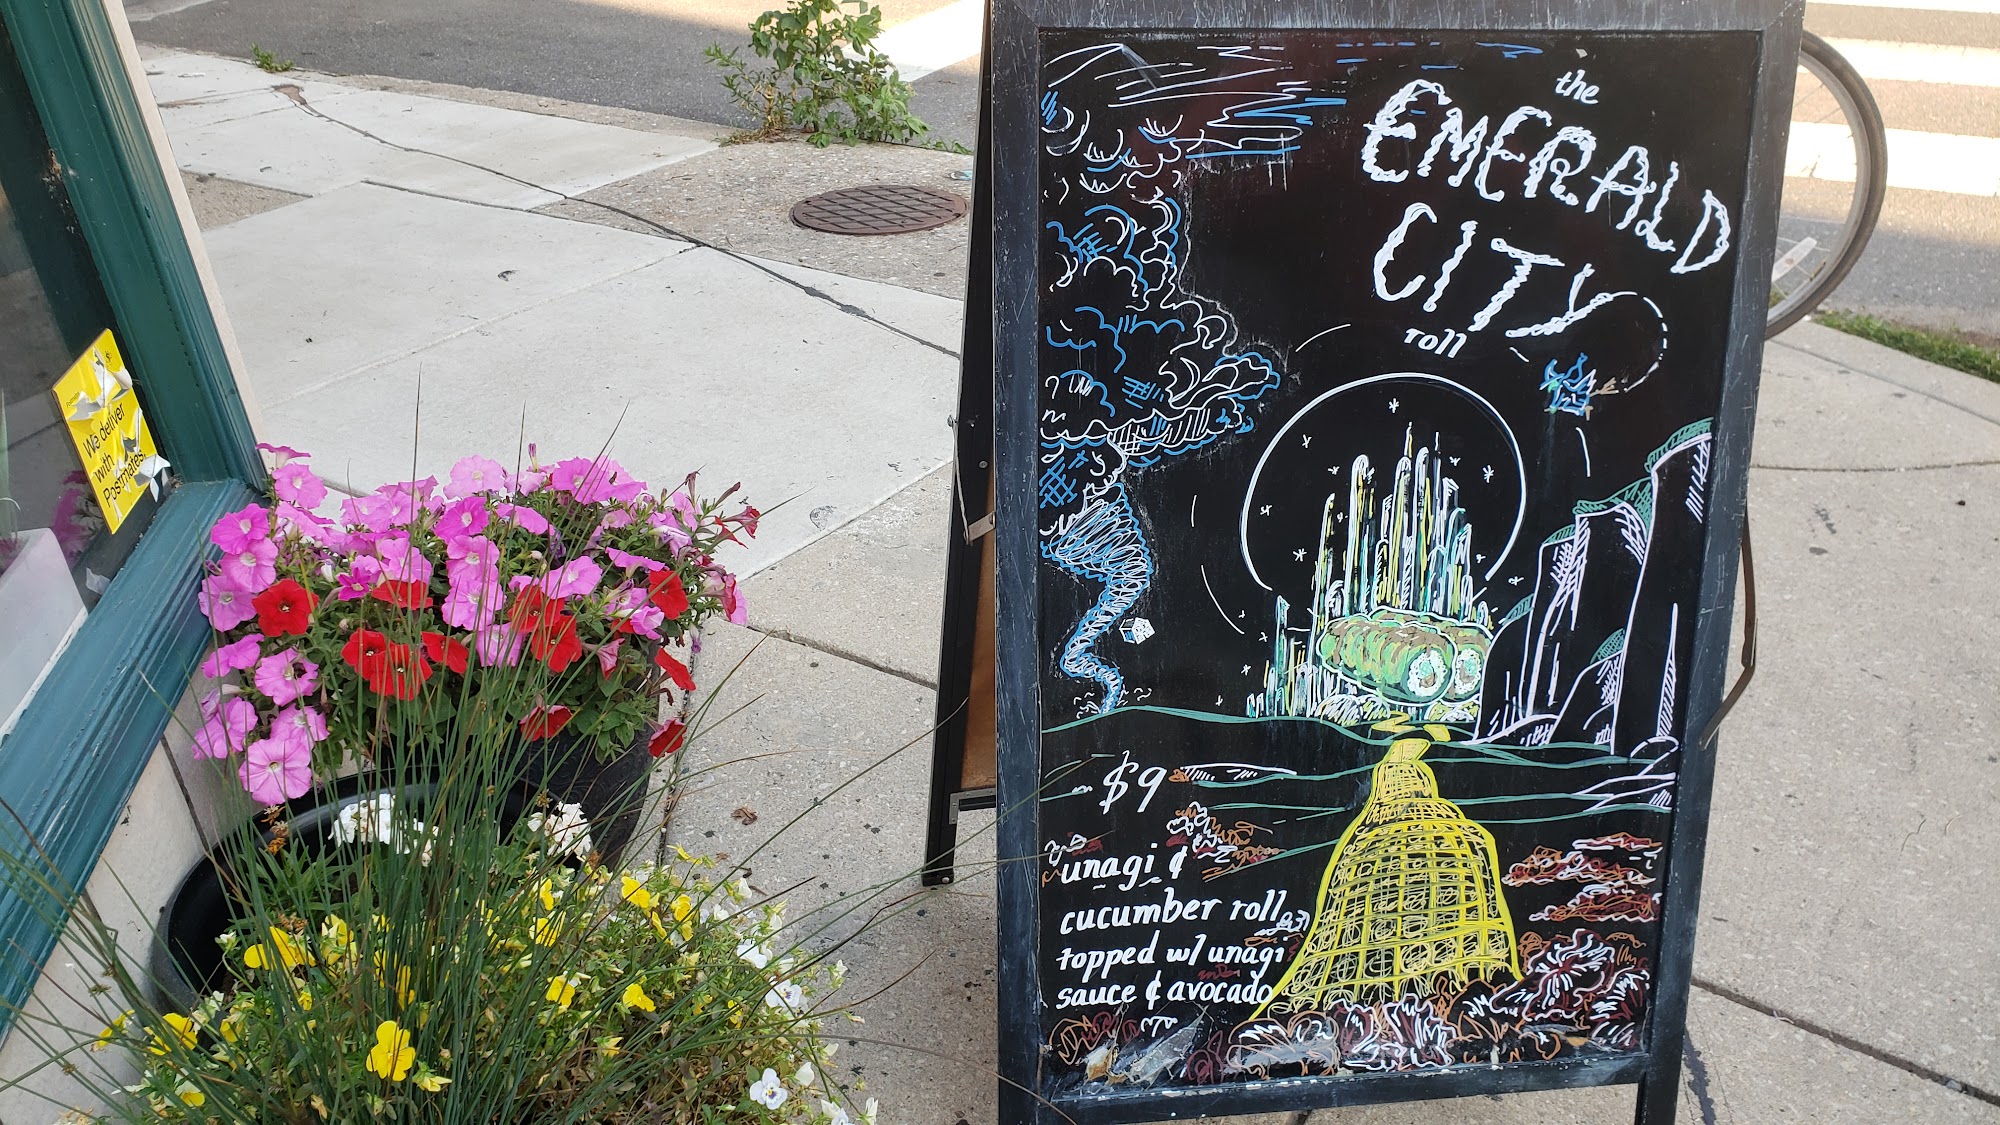 the
EMERALD
CITY
roll
$9
unagi &
cucumber roll
topped w/ unagi
sauce & avocado
We deliver
with
Postmates.